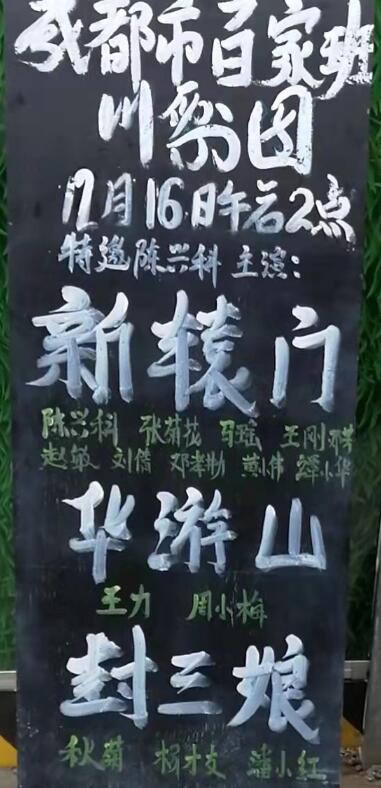 成都市百家班
川剧团
12月16日午后2点
特邀陈兴科主演：
新辕门
陈兴科 张菊花 马瑶 王刚 邓芳
赵敏 刘倩 邓孝勋 黄小伟 谭小华
华游山
王力 周小梅
封三娘
秋菊 杨才友 潘小红